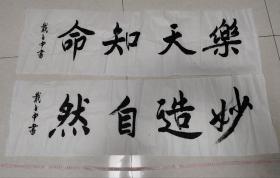 樂天知命
戴立中書
妙造自然
戴立中書